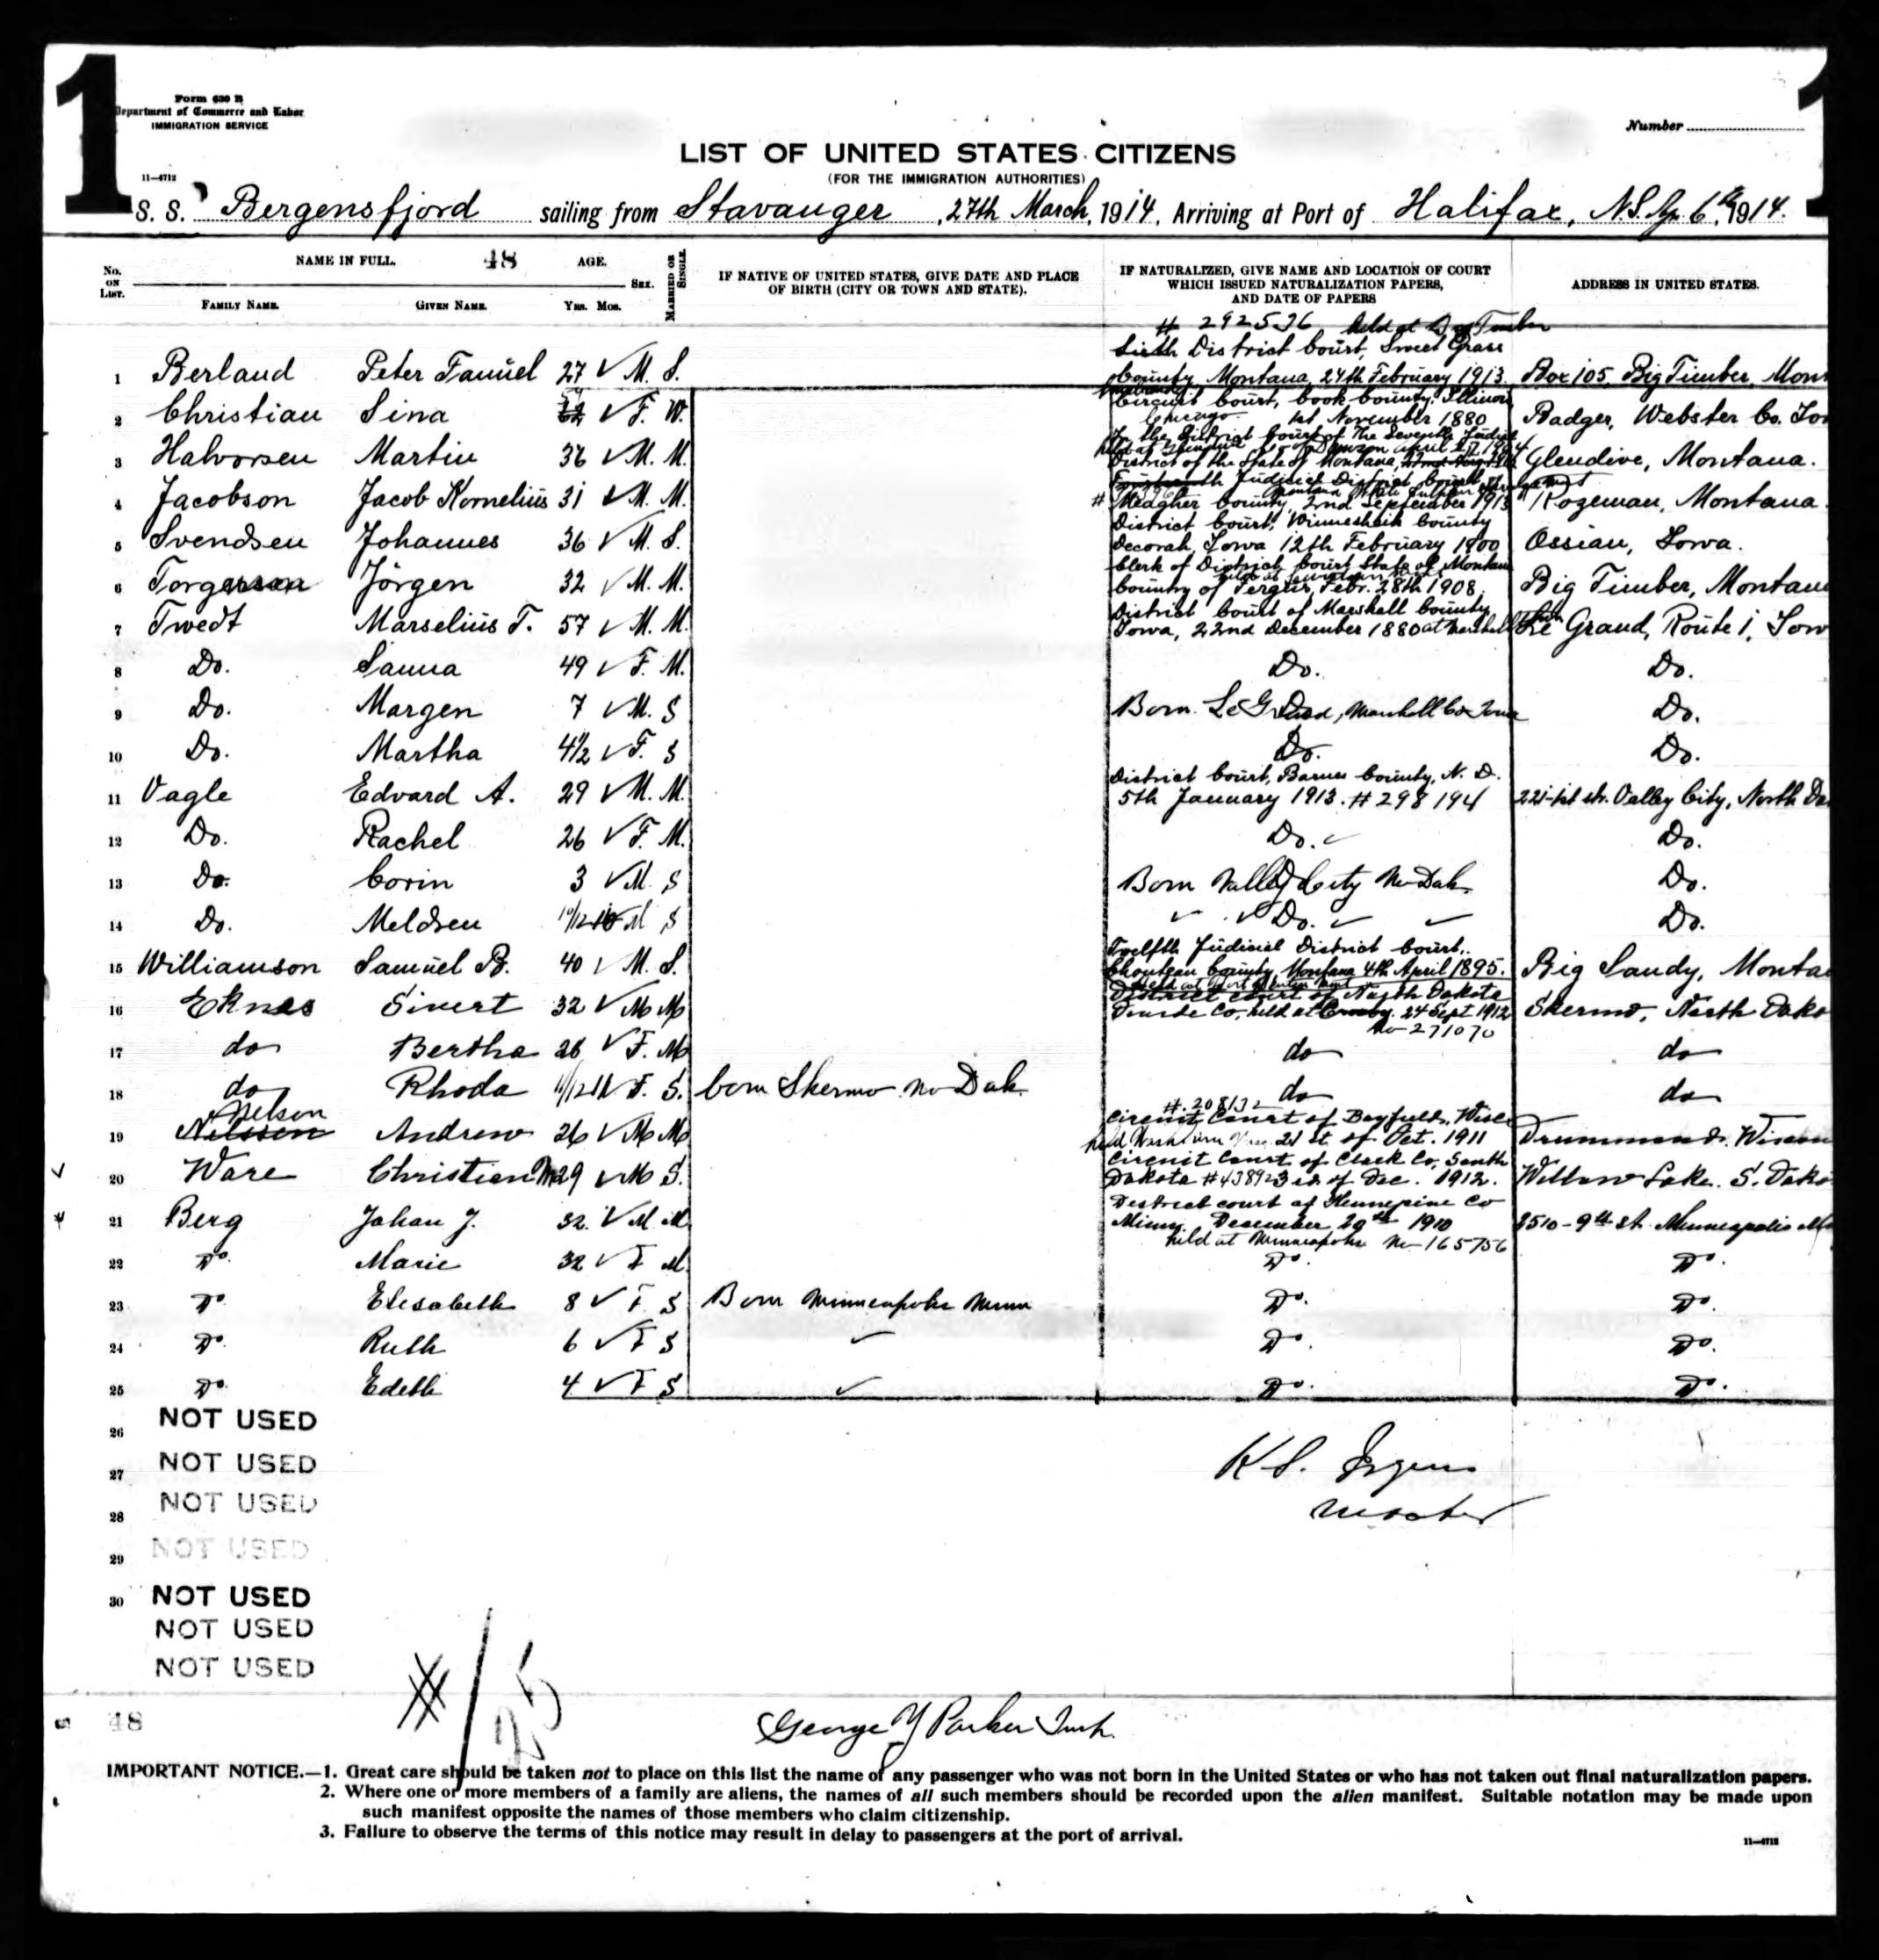 1
Form 630 B
Department of Commerce and Labor
IMMIGRATION SERVICE
Number
LIST OF UNITED STATES CITIZENS
(FOR THE IMMIGRATION AUTHORITIES)
11—4712
S. S. Bergensfjord sailing from Stavanger, 27th March, 1914, Arriving at Port of Halifax, N.S. Ap. 6th, 1914.
No. ON LIST.
NAME IN FULL. 48
FAMILY NAME. GIVEN NAME.
AGE.
YRS. MOS.
SEX.
MARRIED OR SINGLE.
IF NATIVE OF UNITED STATES, GIVE DATE AND PLACE
OF BIRTH (CITY OR TOWN AND STATE).
IF NATURALIZED, GIVE NAME AND LOCATION OF COURT
WHICH ISSUED NATURALIZATION PAPERS,
AND DATE OF PAPERS
ADDRESS IN UNITED STATES.
# 292536 held at Big Timber
District Court, Sweet Grass
1 Berland Peter Tanüel 27 M. S. County, Montana, 24th February 1913. Box 105 Big Timber, Mont
Circuit Court, Cook County, Illinois
2 Christian Sina F. W. Chicago 1st November 1880 Badger, Webster Co. Iow
In the District Court of The Seventh Judicial
3 Halvorsen Martin 36 M. M. District of the State of Montana, Glendive, Montana.
Judicial District Court
4 Jacobson Jacob Kornelius 31 M. M. # Meagher County, 2nd September 1913 Bozeman, Montana
District Court, Winneshiek County
5 Svendsen Johannes 36 M. S. Decorah, Iowa 12th February 1900 Ossian, Iowa.
Clerk of District Court State of Montana
6 Torgerson Jörgen 32 M. M. County of Fergus, Febr. 28th 1908. Big Timber, Montana
District Court of Marshall County
7 Twedt Marselius T. 57 M. M. Iowa, 22nd December 1880 at Marshall Le Grand, Route 1, Iow
8 Do. Sanna 49 F. M. Do. Do.
9 Do. Margen 7 M. S Born Le Grand, Marshall Co Iowa Do.
10 Do. Martha 4½ F. S Do. Do.
District Court, Barnes County, N. D.
11 Vagle Edvard A. 29 M. M. 5th January 1913. # 298194 221-1st str. Valley City, North Da
12 Do. Rachel 26 F. M. Do. Do.
13 Do. Corin 3 M. S Born Valley City No Dak. Do.
14 Do. Meldren 10/12 M S Do. Do.
Twelfth Judicial District Court,
15 Williamson Samuel B. 40 M. S. Chouteau County, Montana 4th April 1895. Big Sandy, Monta
held at Fort Benton Mont
District Court of North Dakota
16 Eknes Sivert 32 M M Divide Co, held at Crosby. 24 Sept 1912 Skermo, North Dako
No 271070
17 do Bertha 26 F. M do do
18 do Rhoda 11/12 F. S. born Skermo No Dak. do do
#. 208132
Nelson
Circuit Court of Bayfield, Wisc
19 Nilssen Andrew 26 M M held Washburn 21st of Oct. 1911 Drummond. Wiscon
Circuit Court of Clark Co, South
20 Ware Christian M 29 M S. Dakota # 43892 3rd of Dec. 1912. Willow Lake. S. Dako
District court of Hennepine Co
21 Berg Johan J. 32 M M Minn. December 20th 1910 2510-9th st. Minneapolis
held at Minneapolis No 165756
22 Do. Marie 32 F M Do. Do.
23 Do. Elesabeth 8 F. S Born Minneapolis Minn Do. Do.
24 Do. Ruth 6 F S Do. Do.
25 Do. Edeth 4 F S Do. Do.
26 NOT USED
27 NOT USED
28 NOT USED
29 NOT USED
30 NOT USED
NOT USED
NOT USED
K S. Irgens
Master
# 1/25
48
George Y Parker Insp.
IMPORTANT NOTICE.—1. Great care should be taken not to place on this list the name of any passenger who was not born in the United States or who has not taken out final naturalization papers.
2. Where one or more members of a family are aliens, the names of all such members should be recorded upon the alien manifest. Suitable notation may be made upon
such manifest opposite the names of those members who claim citizenship.
3. Failure to observe the terms of this notice may result in delay to passengers at the port of arrival.
11—4712